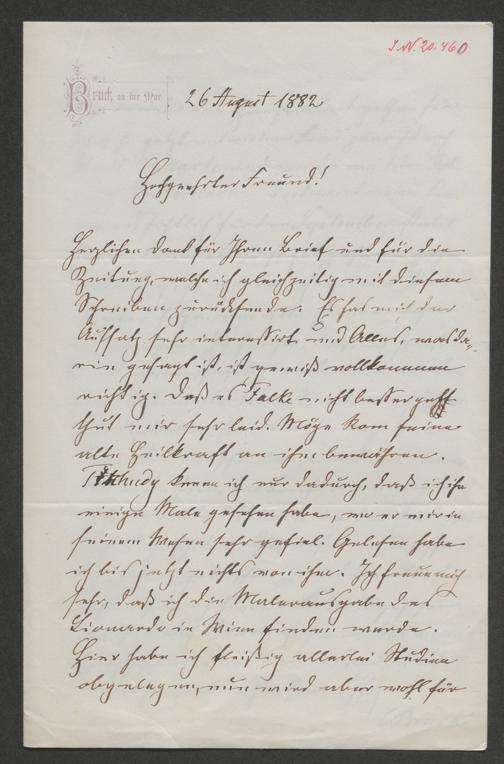 I.N. 20.460
Bruck an der Mur 26 August 1882
Hochgeehrter Freund!
Herzlichen Dank für Ihren Brief und für die
Zeitung, welche ich gleichzeitig mit diesem
Schreiben zurücksende. Es hat mich der
Aufsatz sehr interessirt und Alles, was da-
rin gesagt ist, ist gewiß vollkommen
richtig. Daß es Falke nicht besser geht
thut mir sehr leid. Möge Rom seine
alte Heilkraft an ihm bewähren.
kenne ich nur dadurch, daß ich ihn
einige Male gesehen habe, wo er mir in
seinem Wesen sehr gefiel. Gelesen habe
ich bis jetzt nichts von ihm. Ich freue mich
sehr, daß ich die Malerausgabe des
Lionardo in Wien finden werde.
Hier habe ich fleißig allerlei Studien
obgelegen, nun wird aber wohl für